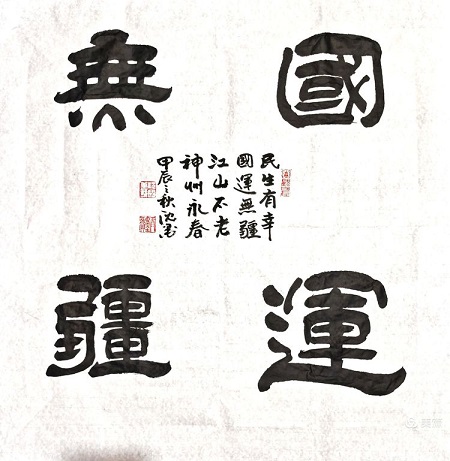 國運
無疆
民生有幸
國運無疆
江山不老
神州永春
甲辰之秋